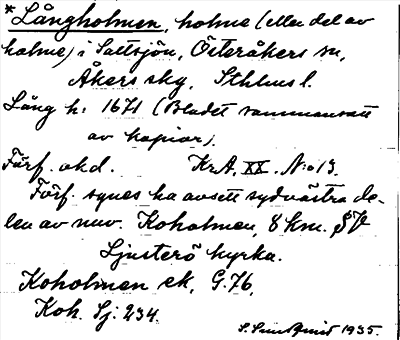 * Långholmen, holme (eller del av
holme) i Saltsjön, Österåkers sn,
Åkers skg, Sthlms l.
Lång h: 1671 (Bladet sammansatt
av kopior).
Förf. okd. KrA, XX. N:o 13.
Förf. synes ha avsett sydvästra de-
len av nuv. Koholmen, 8 km. SV
Ljusterö kyrka.
Koholmen ek, G. 76,
Koh. Sj: 234.
S. Sundquist 1935.